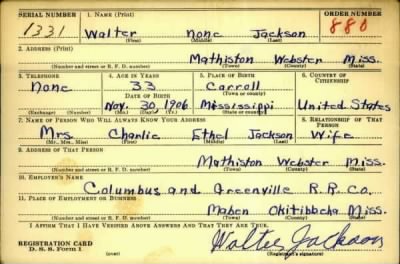 SERIAL NUMBER 1. NAME (Print) ORDER NUMBER
1331 Walter none Jackson 880
(First) (Middle) (Last)
2. ADDRESS (Print)
Mathiston Webster Miss.
(Number and street or R. F. D. number) (Town) (County) (State)
3. TELEPHONE 4. AGE IN YEARS 5. PLACE OF BIRTH 6. COUNTRY OF CITIZENSHIP
none 33 Carroll
DATE OF BIRTH (Town or county)
Nov. 30, 1906 Mississippi United States
(Exchange) (Number) (Mo.) (Day) (Yr.) (State or country)
7. NAME OF PERSON WHO WILL ALWAYS KNOW YOUR ADDRESS 8. RELATIONSHIP OF THAT PERSON
Mrs. Charlie Ethel Jackson Wife
(Mr., Mrs., Miss) (First) (Middle) (Last)
9. ADDRESS OF THAT PERSON
Mathiston Webster Miss.
(Number and street or R. F. D. number) (Town) (County) (State)
10. EMPLOYER'S NAME
Columbus and Greenville R.R. Co.
11. PLACE OF EMPLOYMENT OR BUSINESS
Maben Okitibbeha Miss.
(Number and street or R. F. D. number) (Town) (County) (State)
I AFFIRM THAT I HAVE VERIFIED ABOVE ANSWERS AND THAT THEY ARE TRUE.
REGISTRATION CARD
D. S. S. Form 1 Walter Jackson
(Registrant's signature)